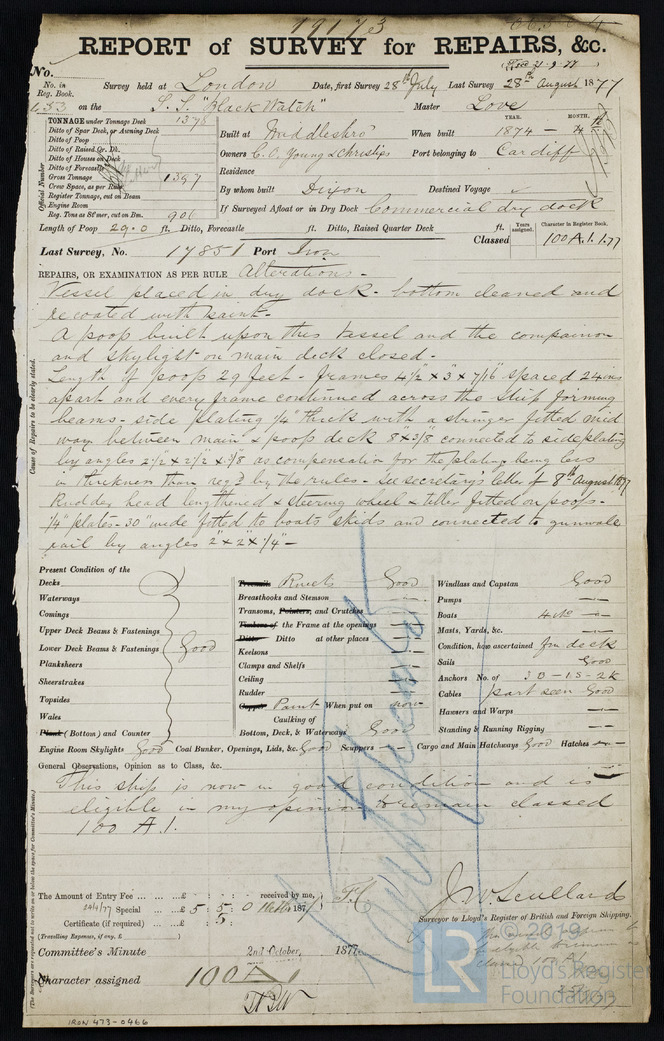 19173
REPORT of SURVEY for REPAIRS, &c.
No.
No. in Reg. Book. Survey held at London Date, first Survey 28th July Last Survey 28th August 1877
453 on the S.S. "Black Watch" Master Love
TONNAGE under Tonnage Deck 1375
Ditto of Spar Deck, or Awning Deck
Ditto of Poop
Ditto of Raised Qr. Dk.
Ditto of Houses on Deck
Ditto of Forecastle
Gross Tonnage 1397
Crew Space, as per Rule
Register Tonnage, cut on Beam
Engine Room
Reg. Tons as St'mer, cut on Bm. 906
Official Number
Built at Middlesbro' When built YEAR. 1874 MONTH. 4th
Owners C. O. Young & Christies Port belonging to Cardiff
Residence
By whom built Dixon Destined Voyage
If Surveyed Afloat or in Dry Dock Commercial dry dock
Length of Poop 29.0 ft. Ditto, Forecastle ft. Ditto, Raised Quarter Deck ft.
Classed Years assigned. Character in Register Book. 100 A.1. 1.77
Last Survey, No. 17851 Port Iron
REPAIRS, OR EXAMINATION AS PER RULE Alterations -
Vessel placed in dry dock - bottom cleaned and
recoated with paint -
A poop built upon this Vessel and the companion
and skylight on main deck closed -
Length of poop 29 feet - frames 4 1/2 x 3 x 7/16 spaced 24 ins
apart and every frame continued across the ship forming
beams - side plating 1/4" thick with a stringer fitted mid
way between main & poop deck 8" x 3/8 connected to side plating
by angles 2 1/2 x 2 1/2 x 3/8 as compensation for the plating being less
in thickness than reqd by the rules - See secretary's letter of 8th August 1877
Rudder head lengthened & steering wheel & tiller fitted on poop -
1/4" plates - 30" wide fitted to boats skids and connected to gunwale
rail by angles 2" x 2" x 1/4" -
Cause of Repairs to be clearly stated.
Present Condition of the
Decks
Waterways
Comings
Upper Deck Beams & Fastenings
Lower Deck Beams & Fastenings Good
Planksheers
Sheerstrakes
Topsides
Wales
Plank (Bottom) and Counter
Treenails Rivets Good
Breasthooks and Stemson
Transoms, Pointers, and Crutches
Timbers of the Frame at the openings
Ditto Ditto at other places
Keelsons
Clamps and Shelfs
Ceiling
Rudder
Copper Paint When put on now
Caulking of
Bottom, Deck, & Waterways Good
Windlass and Capstan Good
Pumps
Boats 4 No
Masts, Yards, &c.
Condition, how ascertained fm deck
Sails Good
Anchors No. of 3B-1S-2K
Cables part seen Good
Hawsers and Warps
Standing & Running Rigging
Engine Room Skylights Good Coal Bunker, Openings, Lids, &c. Good Scuppers Cargo and Main Hatchways Good Hatches
General Observations, Opinion as to Class, &c.
This ship is now in good condition and is
eligible in my opinion to remain classed
100 A.1.
The Amount of Entry Fee ... £ : : received by me,
Special ... £ 5 : 5 : 0 187
Certificate (if required) ... £ : 5 :
(Travelling Expenses, if any, £ )
J W Scullard
Surveyor to Lloyd's Register of British and Foreign Shipping.
Committee's Minute 2nd October, 1877
Character assigned 100 A 1
© 2019
LR Lloyd's Register
Foundation
IRON 473-0466